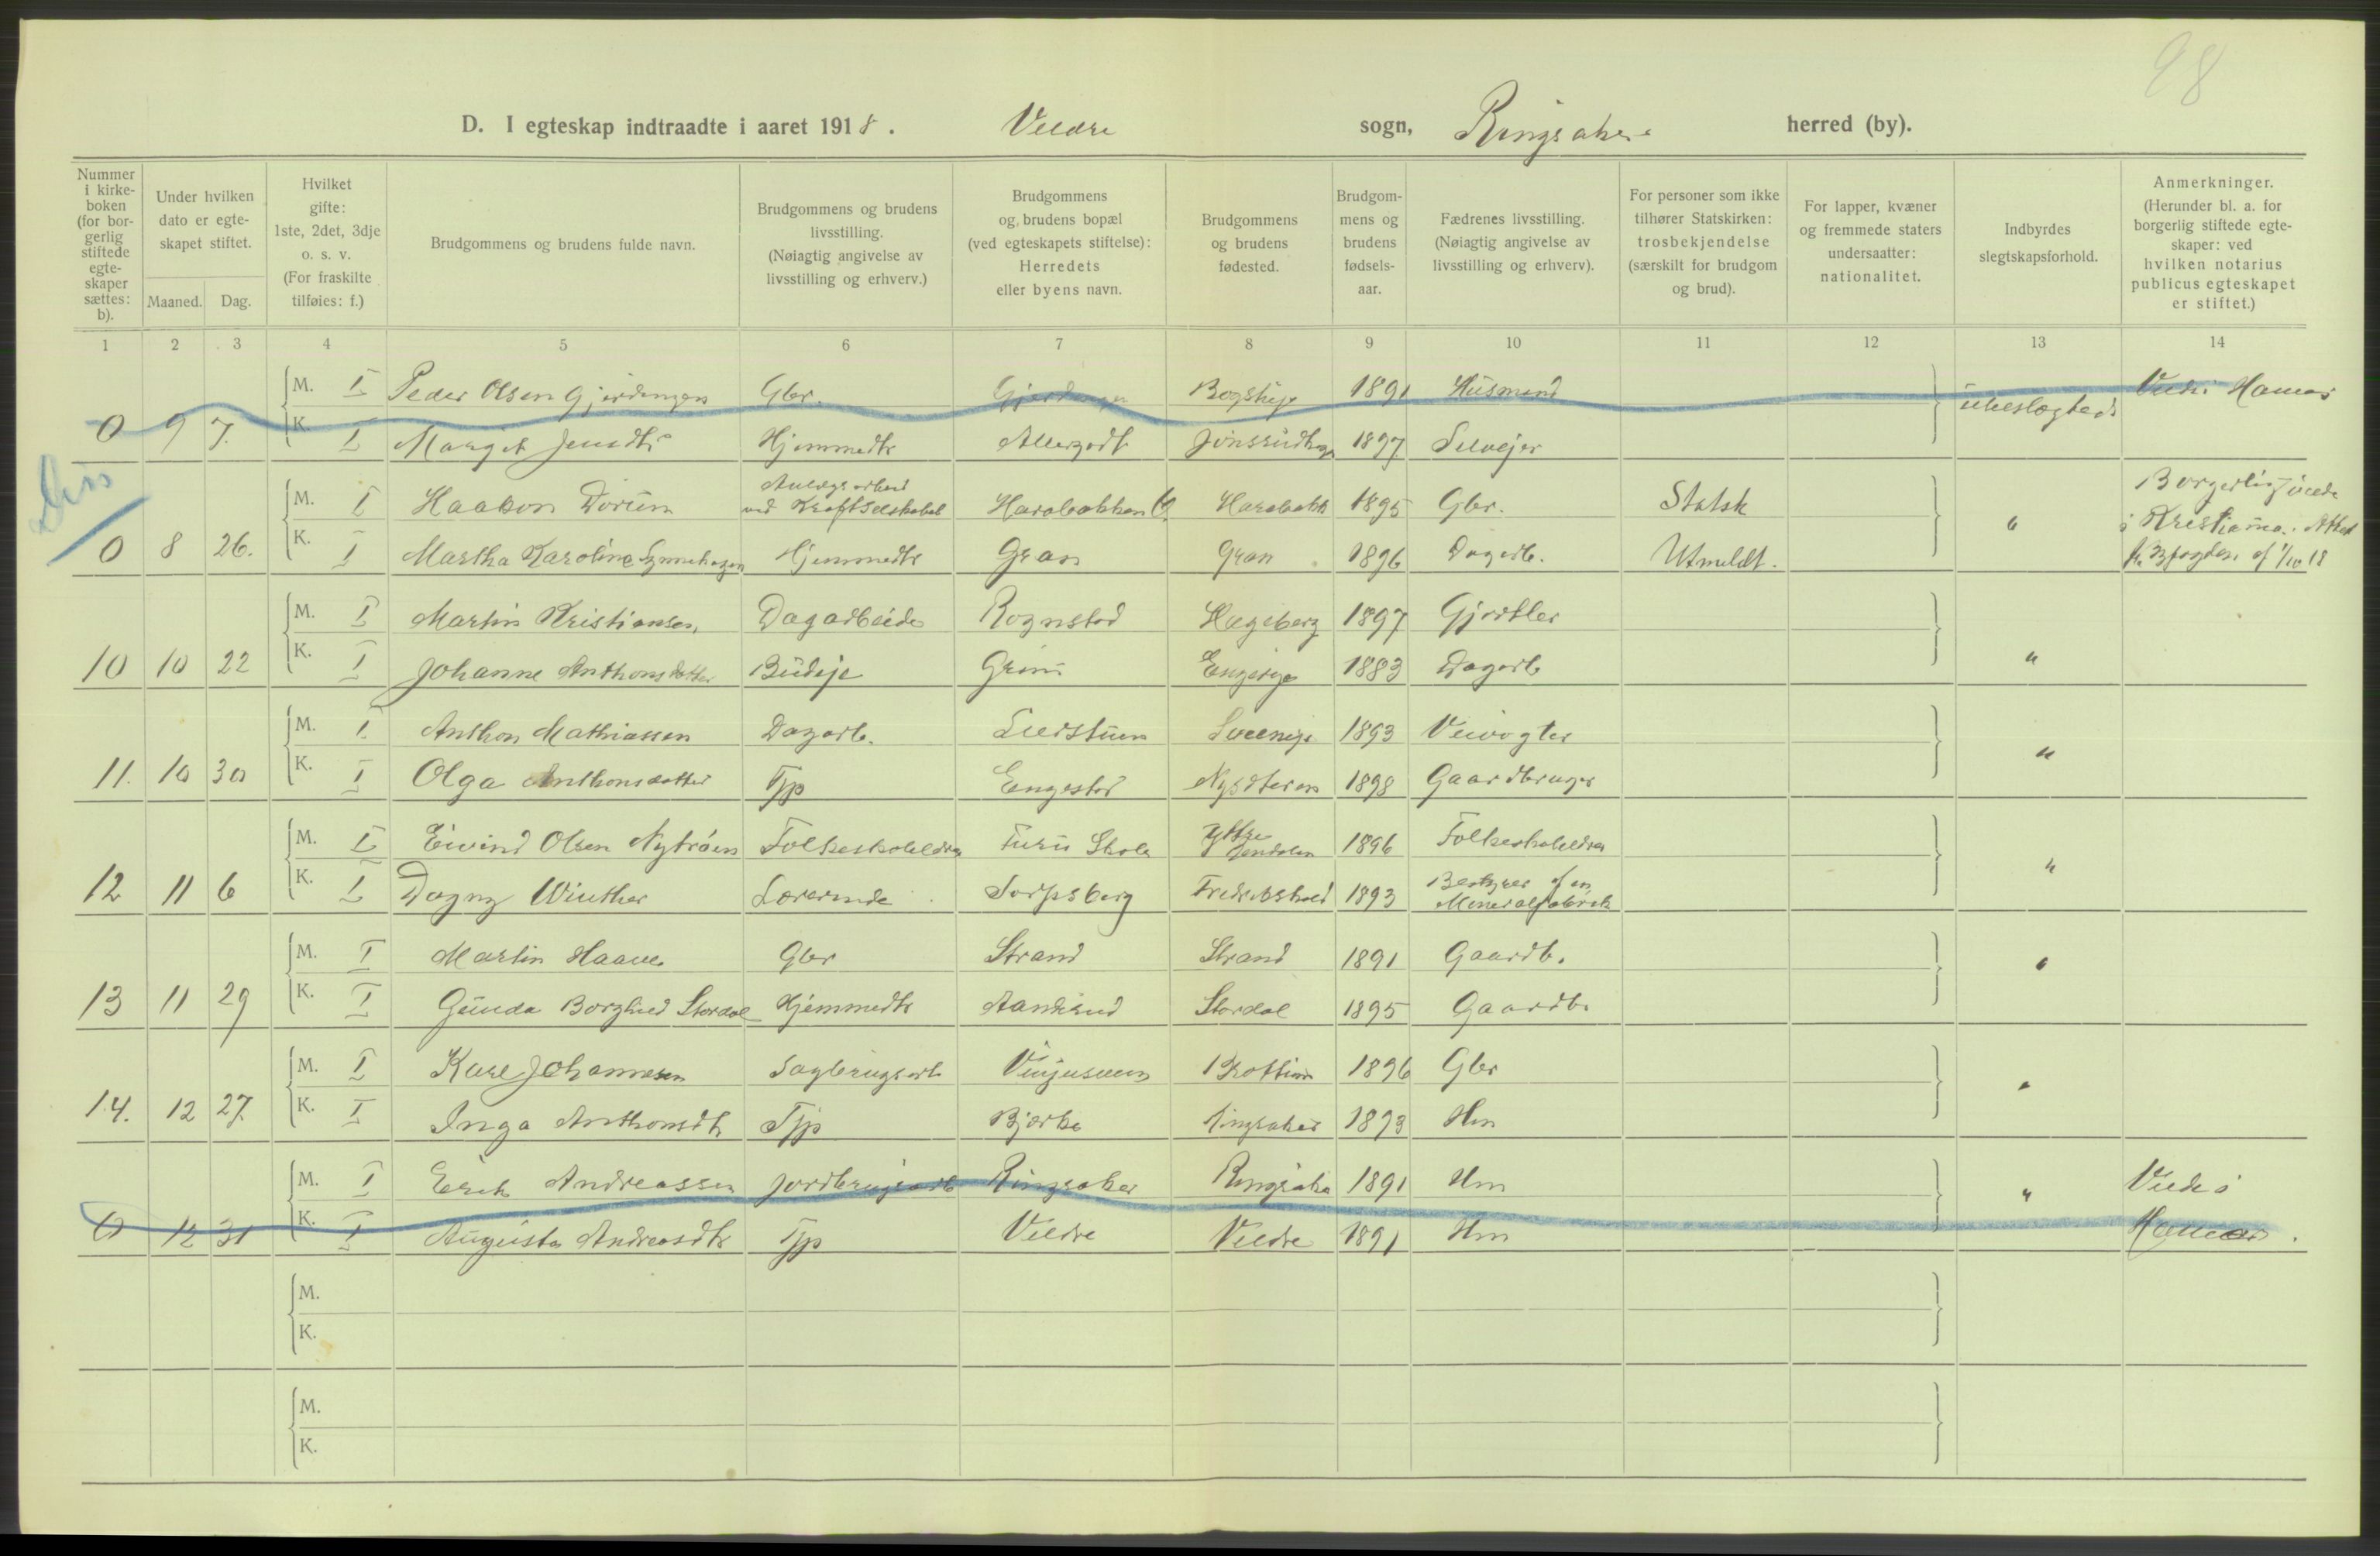 98
D. I egteskap indtraadte i aaret 1918. Veldre sogn, Ringsaker herred (by).
Nummer i kirkeboken (for borgerlig stiftede egteskaper sættes: b).
Under hvilken dato er egteskapet stiftet.
Maaned. Dag.
Hvilket gifte: 1ste, 2det, 3dje o. s. v. (For fraskilte tilføies: f.)
Brudgommens og brudens fulde navn.
Brudgommens og brudens livsstilling. (Nøiagtig angivelse av livsstilling og erhverv.)
Brudgommens og brudens bopæl (ved egteskapets stiftelse): Herredets eller byens navn.
Brudgommens og brudens fødested.
Brudgommens og brudens fødselsaar.
Fædrenes livsstilling. (Nøiagtig angivelse av livsstilling og erhverv).
For personer som ikke tilhører Statskirken: trosbekjendelse (særskilt for brudgom og brud).
For lapper, kvæner og fremmede staters undersaatter: nationalitet.
Indbyrdes slegtskapsforhold.
Anmerkninger. (Herunder bl. a. for borgerlig stiftede egteskaper: ved hvilken notarius publicus egteskapet er stiftet.)
1 2 3 4 5 6 7 8 9 10 11 12 13 14
M. I Peder Olsen Gjerdingen Gbr. 1891 Husmand ubeslegtede Hamar
0 9 7. K. I Margit Jensdtr Hjemmedtr 1897 Selveier
M. I Haakon Dorum ved Kraftselskabet Harabakken 1895 Gbr. Statsk " Borgerlig viede i Kristiania. Attest
0 8 26. K. I Martha Karoline Hjemmedtr Gran Gran 1896 Dagarb. Utmeldt.
M. I Martin Kristiansen Dagarbeider Rognstad Hageberg 1897 Gjørtler
10 10 22 K. I Johanne Anthonsdatter Budeje 1883 Dagarb "
M. I Anthon Mathiassen Dagarb. 1893 Veivogter
11. 10 30 K. I Olga Anthonsdatter Tjp Engestad 1898 Gaardbruger "
M. I Eivind Olsen Nytrøen Folkeskolelærer Furu Skole Yttre Rendalen 1896 Folkeskolelærer
12 11 6 K. I Dagny Winther Lærerinde Sarpsborg Fredrikshald 1893 Bestyrer af en Mineralfabrik "
M. I Martin Haave Gbr Strand Strand 1891 Gaardb.
13 11 29 K. I Gunda Borghild Stordal Hjemmedtr Aanerud Stordal 1895 Gaardb. "
M. I Karl Johannesen Sagbrugsarb 1896 Gbr
14. 12 27. K. I Inga Anthonsdtr Tjp Bjørke Ringsaker 1893 Hm "
M. I Erik Andreassen Jordbrugsarb Ringsaker Ringsaker 1891 Hm " Viede i
0 12 31 K. I Augusta Andreasdtr Tjp Veldre Veldre 1891 Hm Hamar.
M.
K.
M.
K.